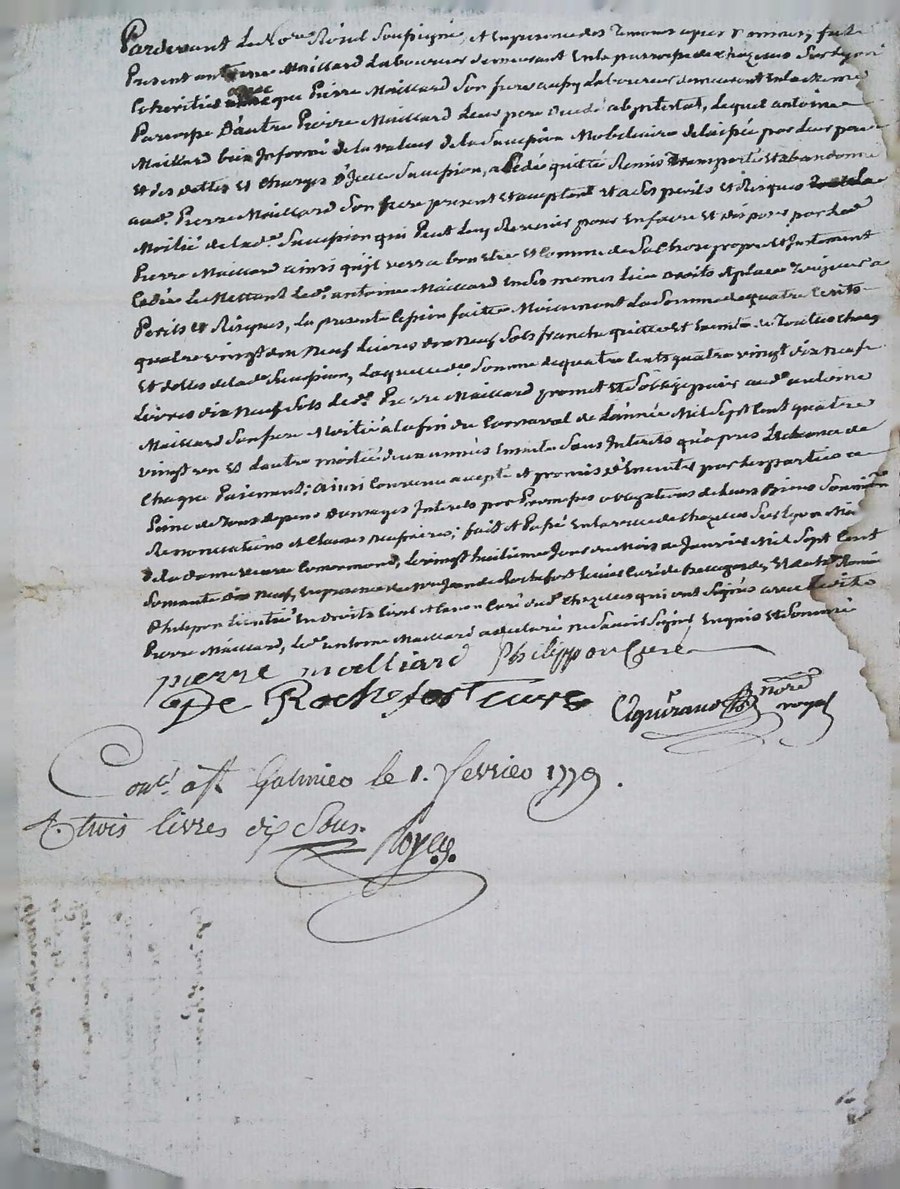 Pardevant Le Nore Roial Soussigné, et en presence des Temoins apres nommes, fut
Present antoine Maillard Laboureur demeurant en la parroisse de chazelles Sur Lyon
Coheritier avec que Pierre Maillard Son frere aussy Laboureur demeurant en la meme
Paroisse D'autre Pierre Maillard Leur pere Decedé abintestat, Lequel antoine
Maillard bien Informé de la valeur de la Succession Mobeliaire delaissée par Leur pere
et des dettes et Charges D'Icelle Succession, a Cedé quitté Remis Transporté et abandonné
aud. Pierre Maillard Son frere present et acceptant et a Ses perils et Risques
Moitié de lad. Succession qui Peut Luy Revenir pour En faire et disposer par Led.
Pierre Maillard ainsi quil verra bon etre et Comme de Sa Chose propre et Justement
Cedée Le Mettant Led. antoine Maillard En Ses memes Lieu droits et place
Perils et Risques, La presente Cession faitte Moienant La Somme de quatre Cents
quatre vingt dix Neuf Livres dix Neuf Sols franche quitte et de Toutes Charges
et dettes de lad. Succession, Laquelle de. Somme de quatre Cents quatre vingt dix Neuf
Livres dix Neuf Sols Led. Pierre Maillard promet et S'oblige paier aud. antoine
Maillard Son frere Moitié a la fin du Carnaval de L'année Mil Sept Cent quatre
vingt un et L'autre moitié deux années Ensuite Sans Interets qu'apres L'echeance de
Chaque Paiement; ainsi Convenu accepté et promis par Les parties a
Peine de Tous depens Domages Interets par Promesses obligations de Leurs Biens
Renonciations et Clauses Necessaires; fait et Passé En La ville de Chazelles Sur Lyon
de la dame veuve Comarmond, Le vingt huitieme Jour du Mois de Janvier Mil Sept Cent
Soixante dix Neuf, En presence de Mre Jean de Rochefort Curé de et de Mre
Philipon En droits Civil et Canon Curé dud. Chazelles qui ont Signés avec Ledit
Pierre Maillard, Led. antoine Maillard a declaré ne Savoir Signer Enquis et Sommé
pierre malliard Philippon Curé
De Rochefort Curé nore
royal
Conlé a St Galmier le 1. fevrier 1779.
R. trois livres dix Sous.